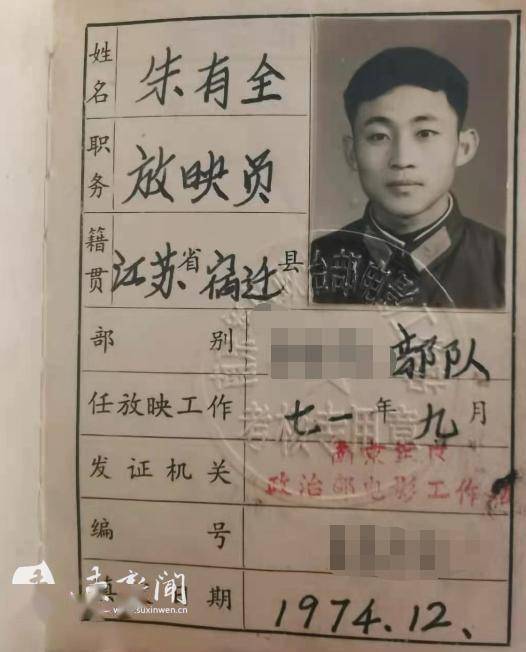 姓名 朱有全
职务 放映员
籍贯 江苏省宿迁县
部别 部队
任放映工作 七一年九月
发证机关 南京军区
政治部电影工作
编号
日期 1974.12.
www.suxinwen.cn